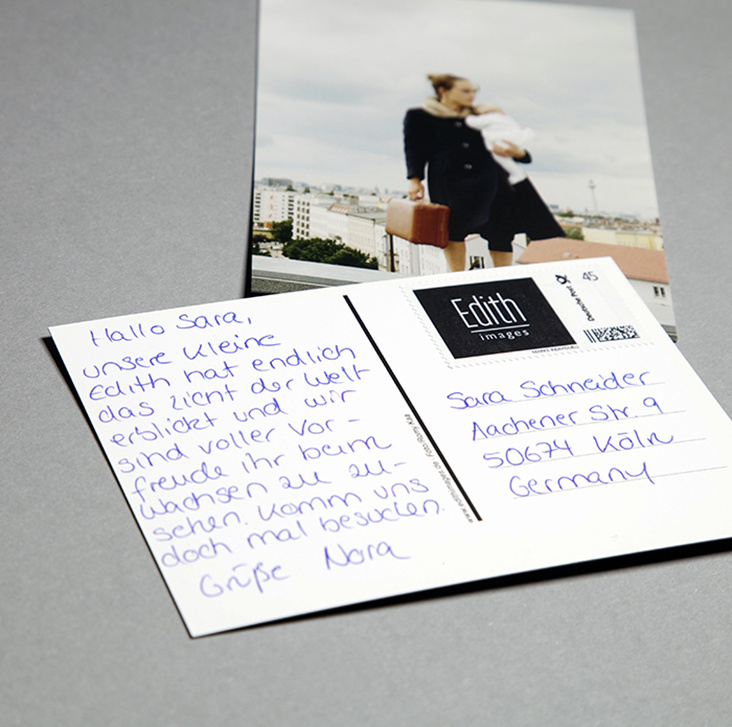 Hallo Sara,
unsere kleine
Edith hat endlich
das Licht der Welt
erblickt und wir
sind voller Vor-
freude ihr beim
Wachsen zu zu-
sehen. Komm uns
doch mal besuchen.
Grüße Nora
Edith
images
Deutsche Post
45
Sara Schneider
Aachener Str. 9
50674 Köln
Germany